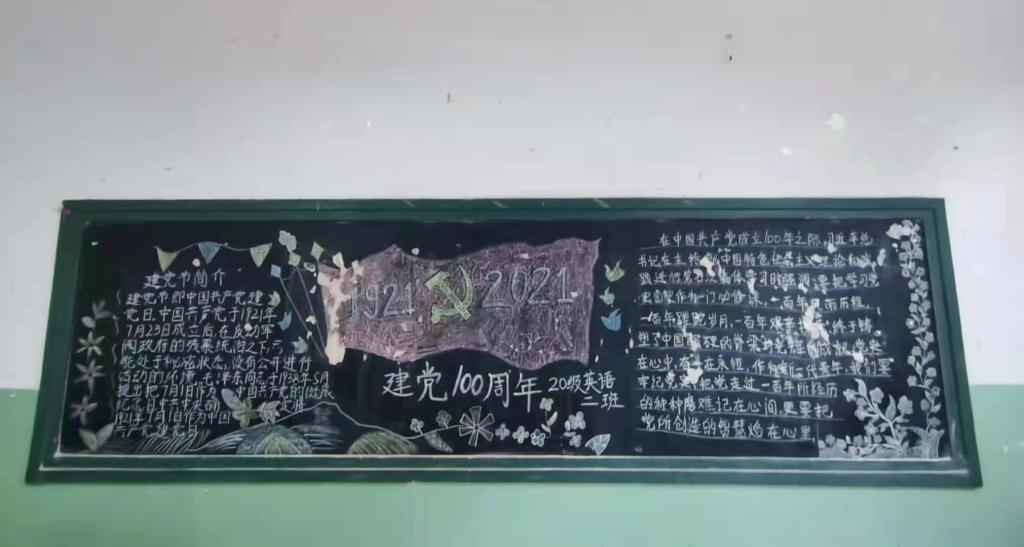 建党节简介
建党节即中国共产党建
党日，中国共产党于1921年
7月23日成立后，在反动军
阀政府的残暴统治之下，
处于秘密状态，没有公开进行
活动的环境。毛泽东同志于1938年5月
提出把7月1日作为中国共产党的
纪念日
产党建党日
1921
2021
建党100周年
20级英语
二班
在中国共产党成立100年之际，习近平总
书记在主持 中国特色社会主义理论和实
践进行 集体学习时强调：要把学习党
史 作为一门必修课，一百年 历程，
一百年 岁月，一百年艰辛 终于铸
塑了中国 的脊梁 党史
在心中 永恒，作为新一代青年，我们要
牢记党史，把党走过一百年所经历
的种种磨难记在心间，更要把
党所创造的智慧焰在心里